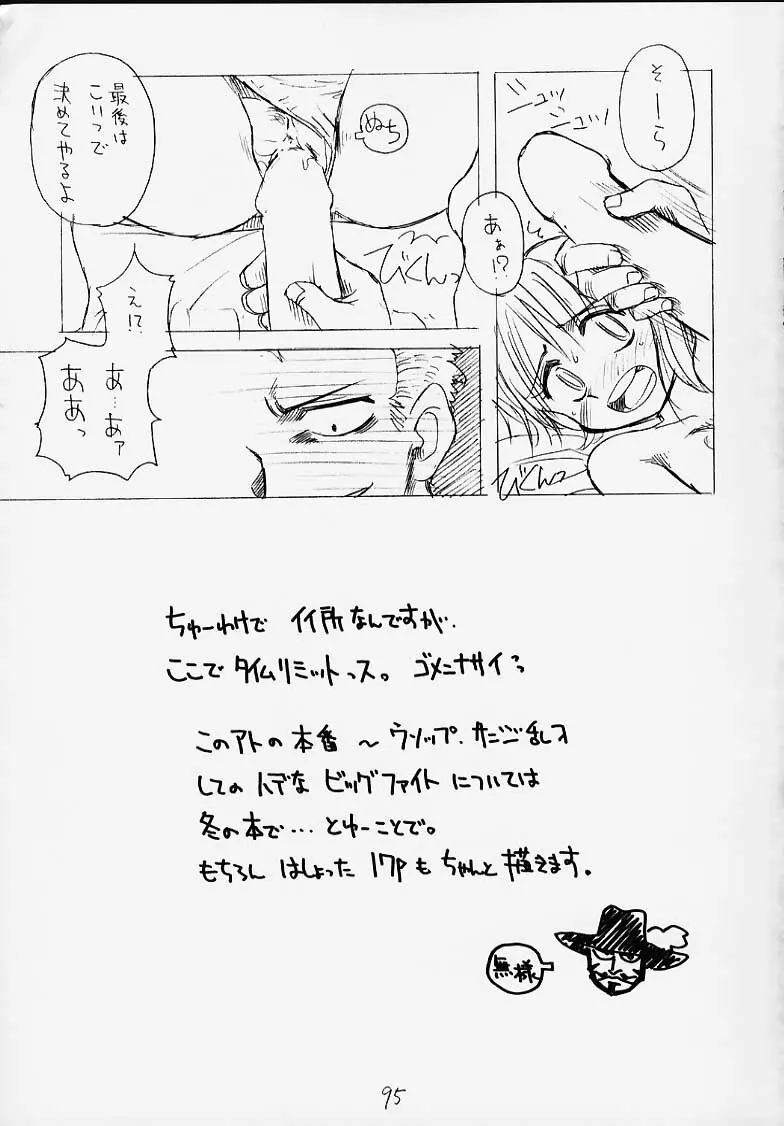 そーら
ニュッ
ニュッ
あぁ!?
びくんっ
最後は
こいつで
決めてやるよ
ぬち
びくんっ
え!?
あ…あァ
ああっ
ちゅーわけで イイ所なんですが、
ここで タイムリミットっス。ゴメンナサイっ
このアトの 本番 〜 ウソップ、サンジ乱入
しての ハデな ビッグファイト については
冬の本で… とゆーことで。
もちろん はしょった 17P も ちゃんと 描きます。
無様
95